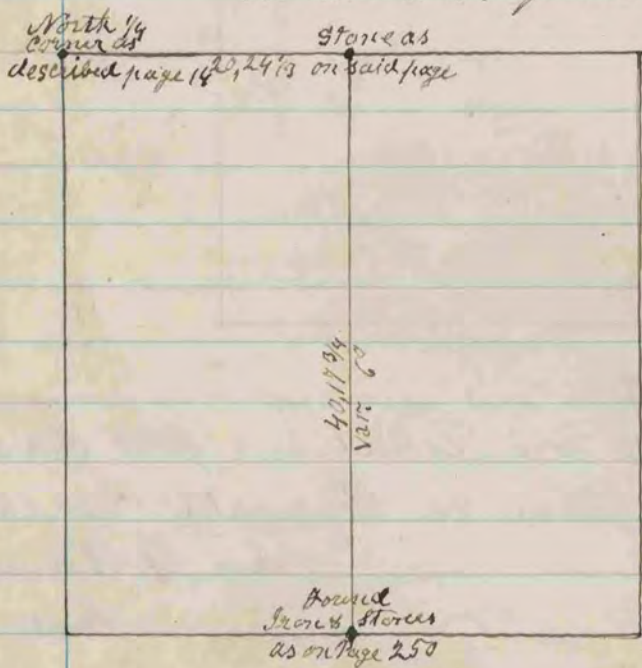 North 1/4
Corner as
described page 14
20,24 1/3
Stone as
on said page
40,17 3/4
Var. 6°
Found
Iron & Stones
as on Page 250